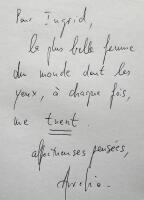 Pour Ingrid,
la plus belle femme
du monde dont les
yeux, à chaque fois,
me tuent.
affectueuses pensées,
Aurélia.